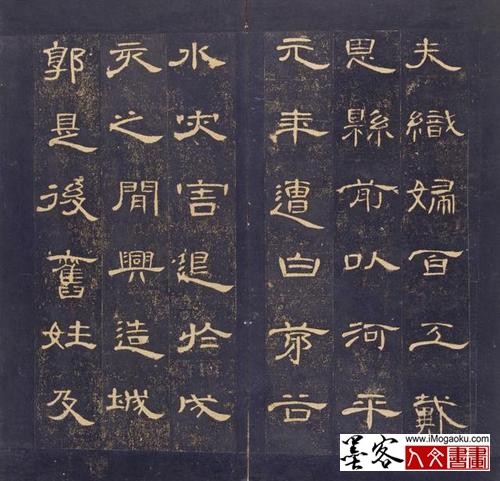 夫織婦百工戴
恩縣前以河平
元年遭白茅谷
水灾害退於戌
亥之間興造城
郭是後舊姓及
墨客
www.iMogaoku.com
人文書畫